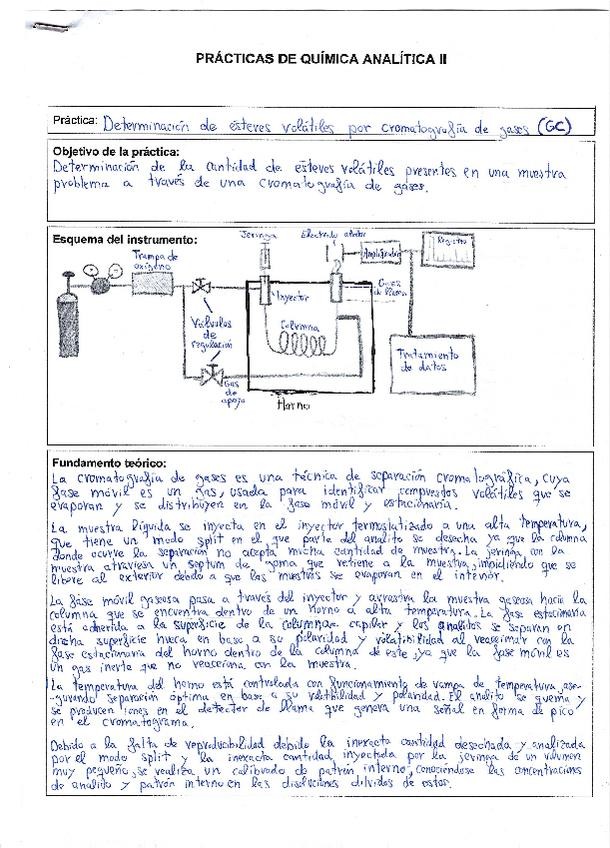 PRÁCTICAS DE QUÍMICA ANALÍTICA II
Práctica: Determinación de ésteres volátiles por cromatografía de gases (GC)
Objetivo de la práctica:
Determinación de la cantidad de ésteres volátiles presentes en una muestra
problema a través de una cromatografía de gases.
Esquema del instrumento:
Jeringa
Registro
Trampa de
oxígeno
Amplificador
Inyector
Columna
Válvulas
de
regulación
Tratamiento
de datos
Gas
de
apoyo
Horno
Fundamento teórico:
La cromatografía de gases es una técnica de separación cromatográfica, cuya
fase móvil es un gas, usada para identificar compuestos volátiles que se
evaporan y se distribuyen en la fase móvil y estacionaria.
La muestra líquida se inyecta en el inyector termostatizado a una alta temperatura,
que tiene un modo split en el que parte del analito se desecha ya que la columna
donde ocurre la separación no acepta mucha cantidad de muestra. La jeringa con la
muestra atraviesa un septum de goma que retiene a la muestra, impidiendo que se
libere al exterior debido a que las muestras se evaporan en el interior.
La fase móvil gaseosa pasa a través del inyector y arrastra la muestra gaseosa hacia la
columna que se encuentra dentro de un horno a alta temperatura. La fase estacionaria
está adherida a la superficie de la columna capilar y los analitos se separan en
dicha superficie hueca en base a su polaridad y volatibilidad al reaccionar con la
fase estacionaria del horno dentro de la columna de este, ya que la fase móvil es
un gas inerte que no reacciona con la muestra.
La temperatura del horno está controlada con funcionamiento de rampa de temperatura, ase-
gurando separación óptima en base a su volatibilidad y polaridad. El analito se quema y
se producen iones en el detector de llama que genera una señal en forma de pico
en el cromatograma.
Debido a la falta de reproducibilidad debido la inexacta cantidad desechada y analizada
por el modo split y la inexacta cantidad inyectada por la jeringa de un volumen
muy pequeño, se realiza un calibrado de patrón interno, conociéndose las concentraciones
de analito y patrón interno en las disoluciones de estos.